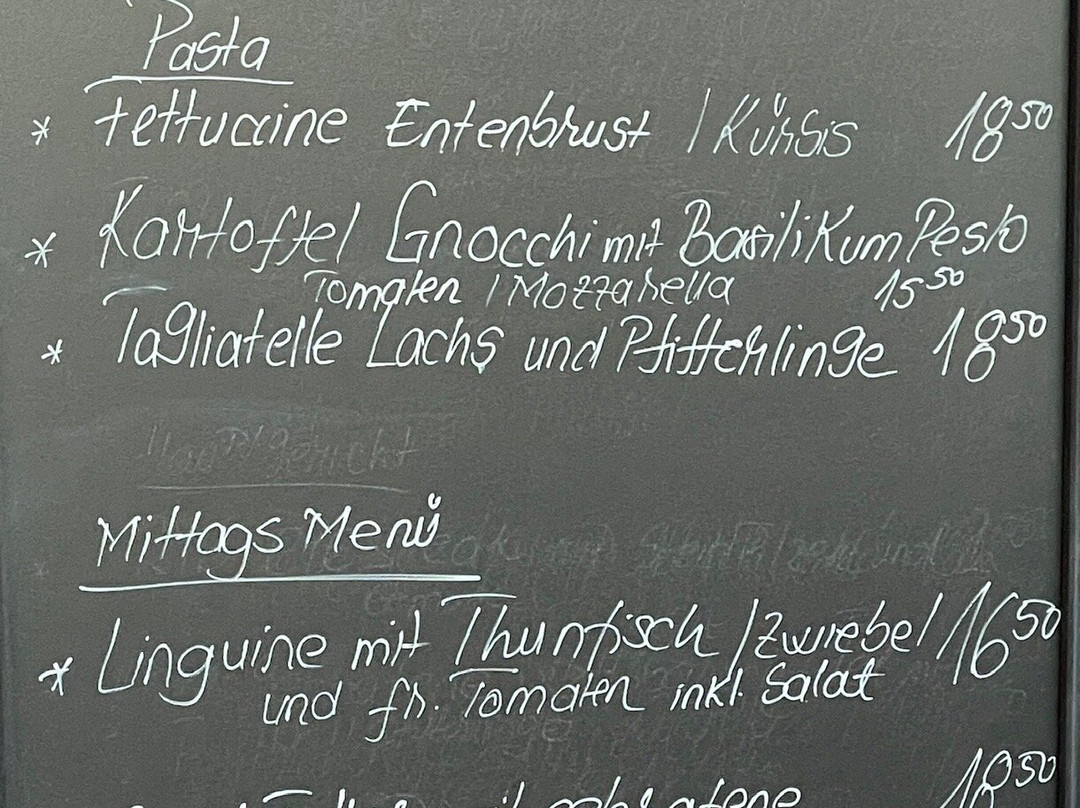 Pasta
* Fettuccine Entenbrust / Kürbis 18 50
* Kartoffel Gnocchi mit Basilikum Pesto
Tomaten / Mozzarella 15 50
* Tagliatelle Lachs und Pfifferlinge 18 50
Hauptgericht
Mittags Menü
* Linguine mit Thunfisch / Zwiebel 16 50
und fr. Tomaten inkl. Salat
18 50